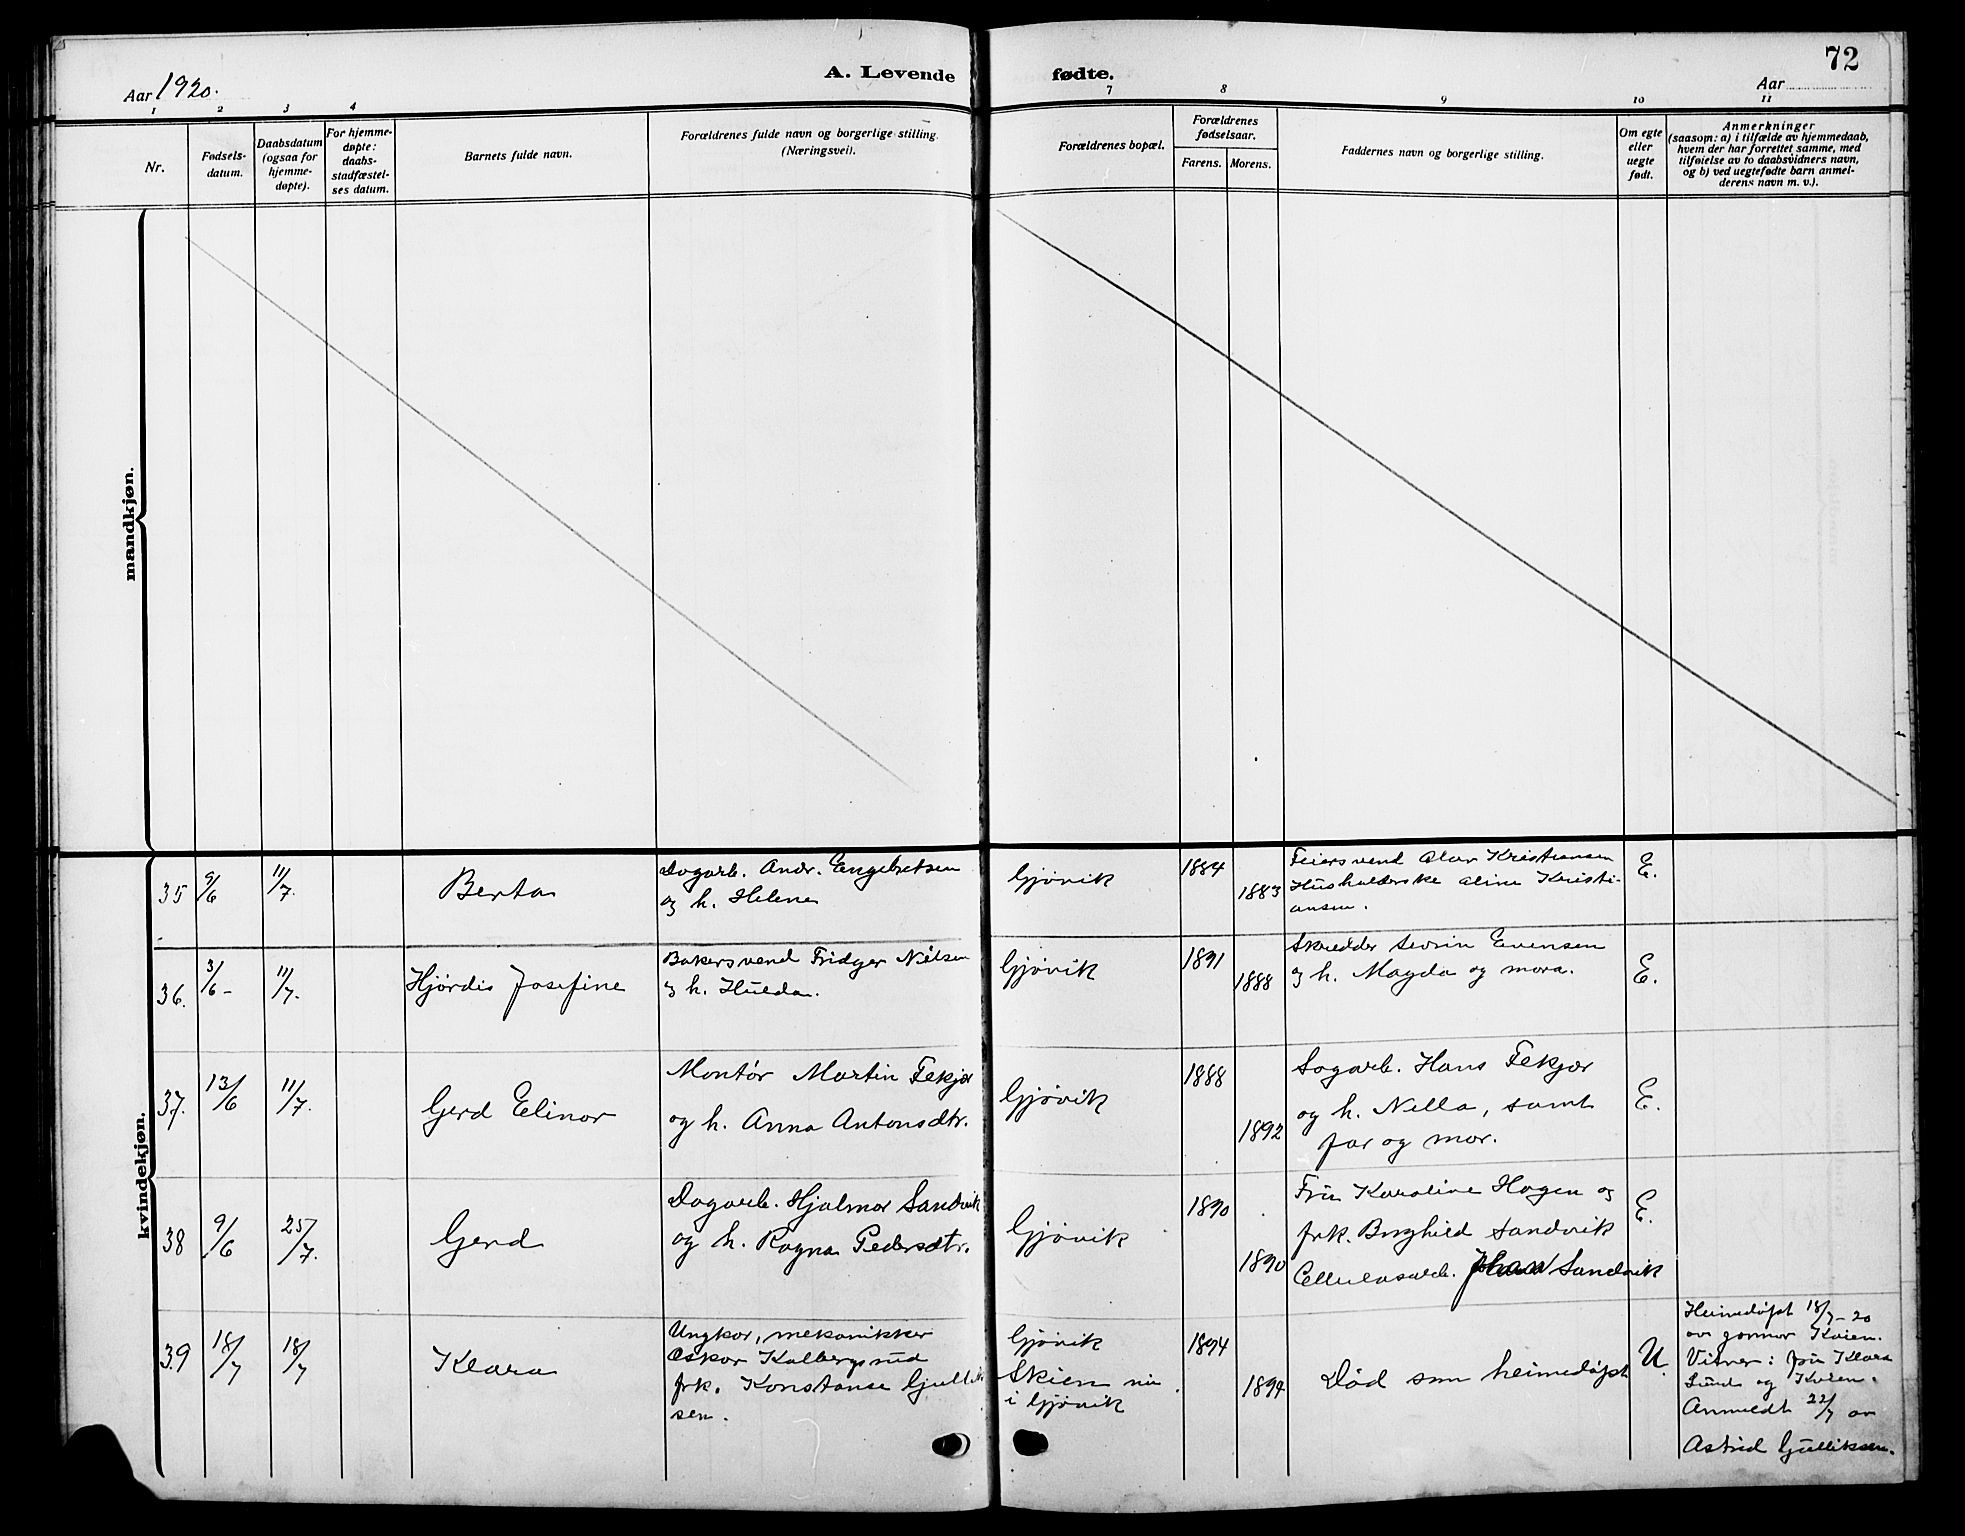 72
Aar 1920.
A. Levende fødte.
Aar
1 2 3 4 7 8 9 10 11
Nr.
Fødsels-
datum.
Daabsdatum
(ogsaa for
hjemme-
døpte).
For hjemme-
døpte:
daabs-
stadfæstel-
ses datum.
Barnets fulde navn.
Forældrenes fulde navn og borgerlige stilling.
(Næringsvei).
Forældrenes bopæl.
Forældrenes
fødselsaar.
Farens. Morens.
Faddernes navn og borgerlige stilling.
Om egte
eller
uegte
født.
Anmerkninger
(saasom: a) i tilfælde av hjemmedaab,
hvem der har forrettet samme, med
tilføielse av to daabsvidners navn,
og b) ved uegtefødte barn anmel-
derens navn m. v.).
mandkjøn.
kvindekjøn.
35 9/6 11/7. Berta
Dagarb. Andr. Engebretsen
og h. Helene
Gjøvik 1884 1883
Feiersvend Olav Kristiansen
Husholderske Aline Kristi-
ansen.
E.
36. 3/6- 11/7. Hjørdis Josefine
Bakersvend Fridger Nilsen
og h. Hulda.
Gjøvik 1891 1888
Skredder Sevrin Evensen
og h. Magda og mora.
E.
37. 13/6 11/7. Gerd Elinor
Montør Martin Fekjær
og h. Anna Antonsdtr.
Gjøvik 1888 1892
Sagarb. Hans Fekjær
og h. Nella, samt
far og mor.
E.
38 9/6 25/7. Gerd
Dagarb. Hjalmar Sandvik
og h. Ragna Pedersdtr.
Gjøvik 1890 1890
Fru Karoline Hagen og
frk. Borghild Sandvik
Cellulosearb. Johan Sandvik
E.
39 18/7 18/7 Klara
Ungkar, mekanikker
Oskar Kalbergsrud
frk. Konstanse Gullik
sen.
Gjøvik
Skien nu
i Gjøvik
1894 1894
Død som heimedøpt
U.
Heimedøpt 18/7-20
av jormor Kvien.
Vitner: fru Klara
Lund og Kvien.
Anmeldt 22/7 av
Astrid Gulliksen.